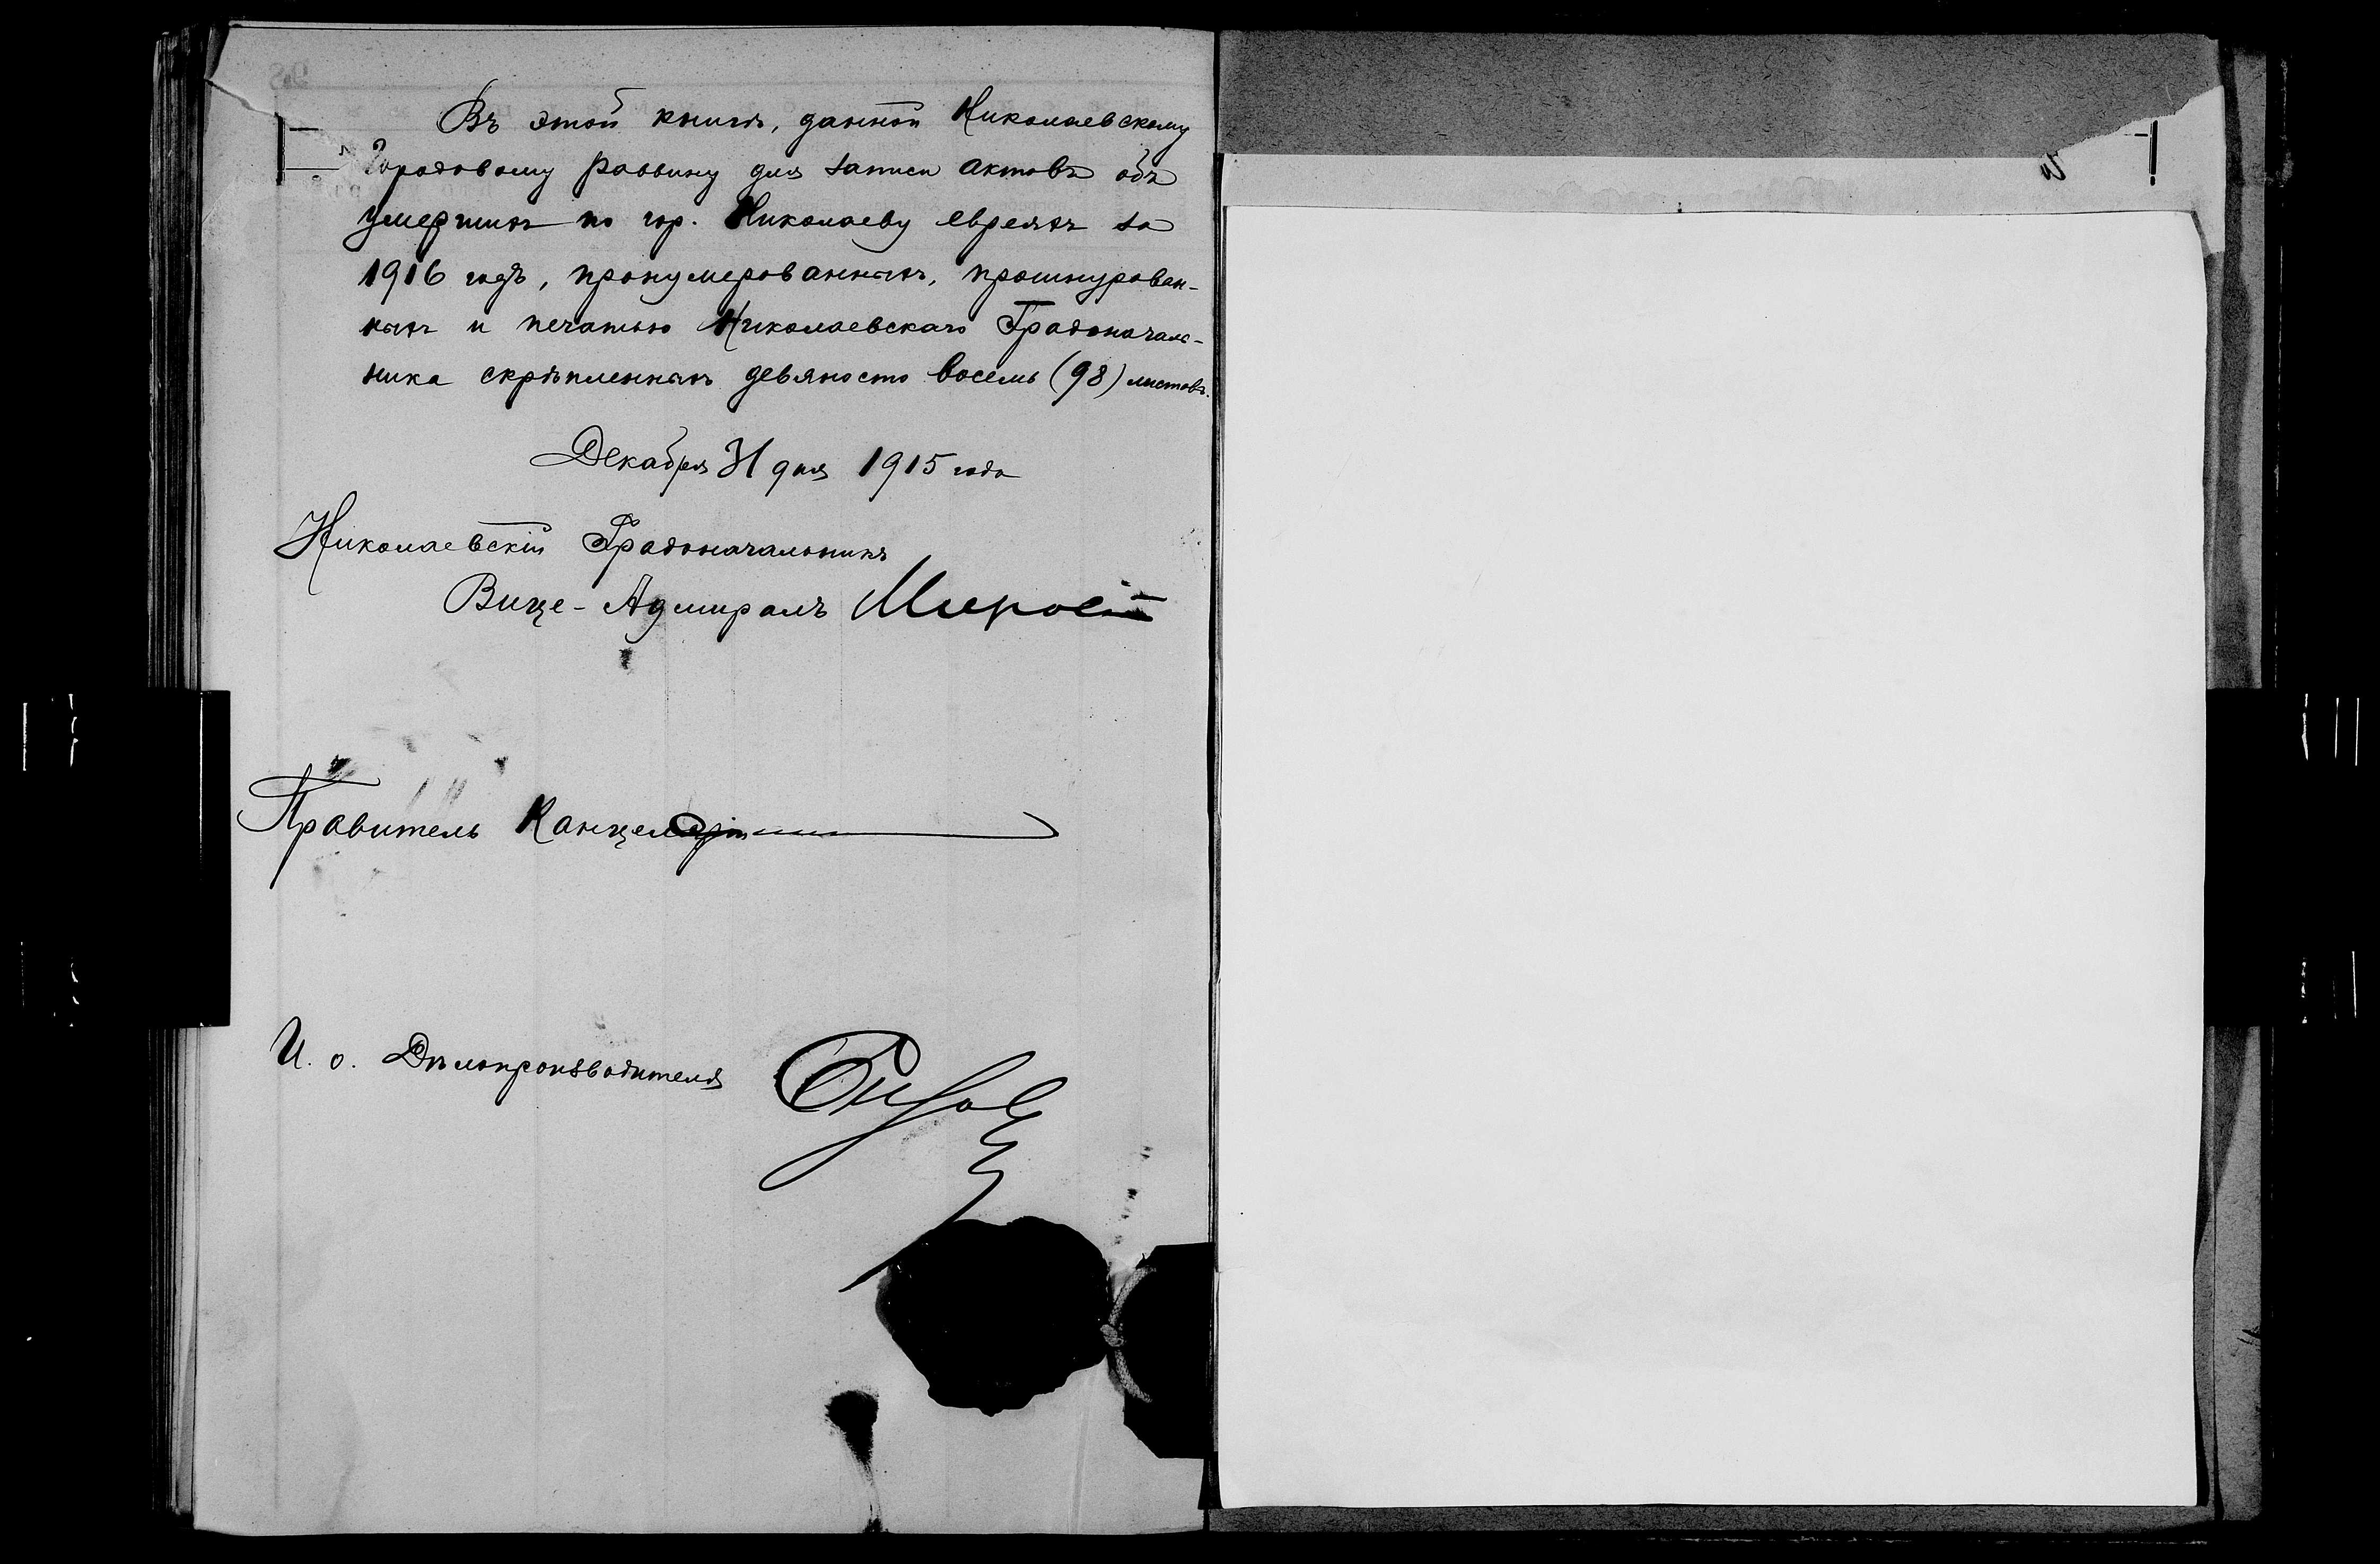 Въ этой книгѣ, данной Николаевскому
Городовому Раввину для записи актовъ объ
умершихъ по гор. Николаеву евреяхъ за
1916 годъ, пронумерованныхъ, прошнурован-
ныхъ и печатью Николаевскаго Градоначаль-
ника скрѣпленныхъ девяносто восемь (98) листовъ.
Декабря 31 дня 1915 года
Николаевскій Градоначальникъ
Вице-Адмиралъ
Правитель Канцеляріи
И. о. Дѣлопроизводителя